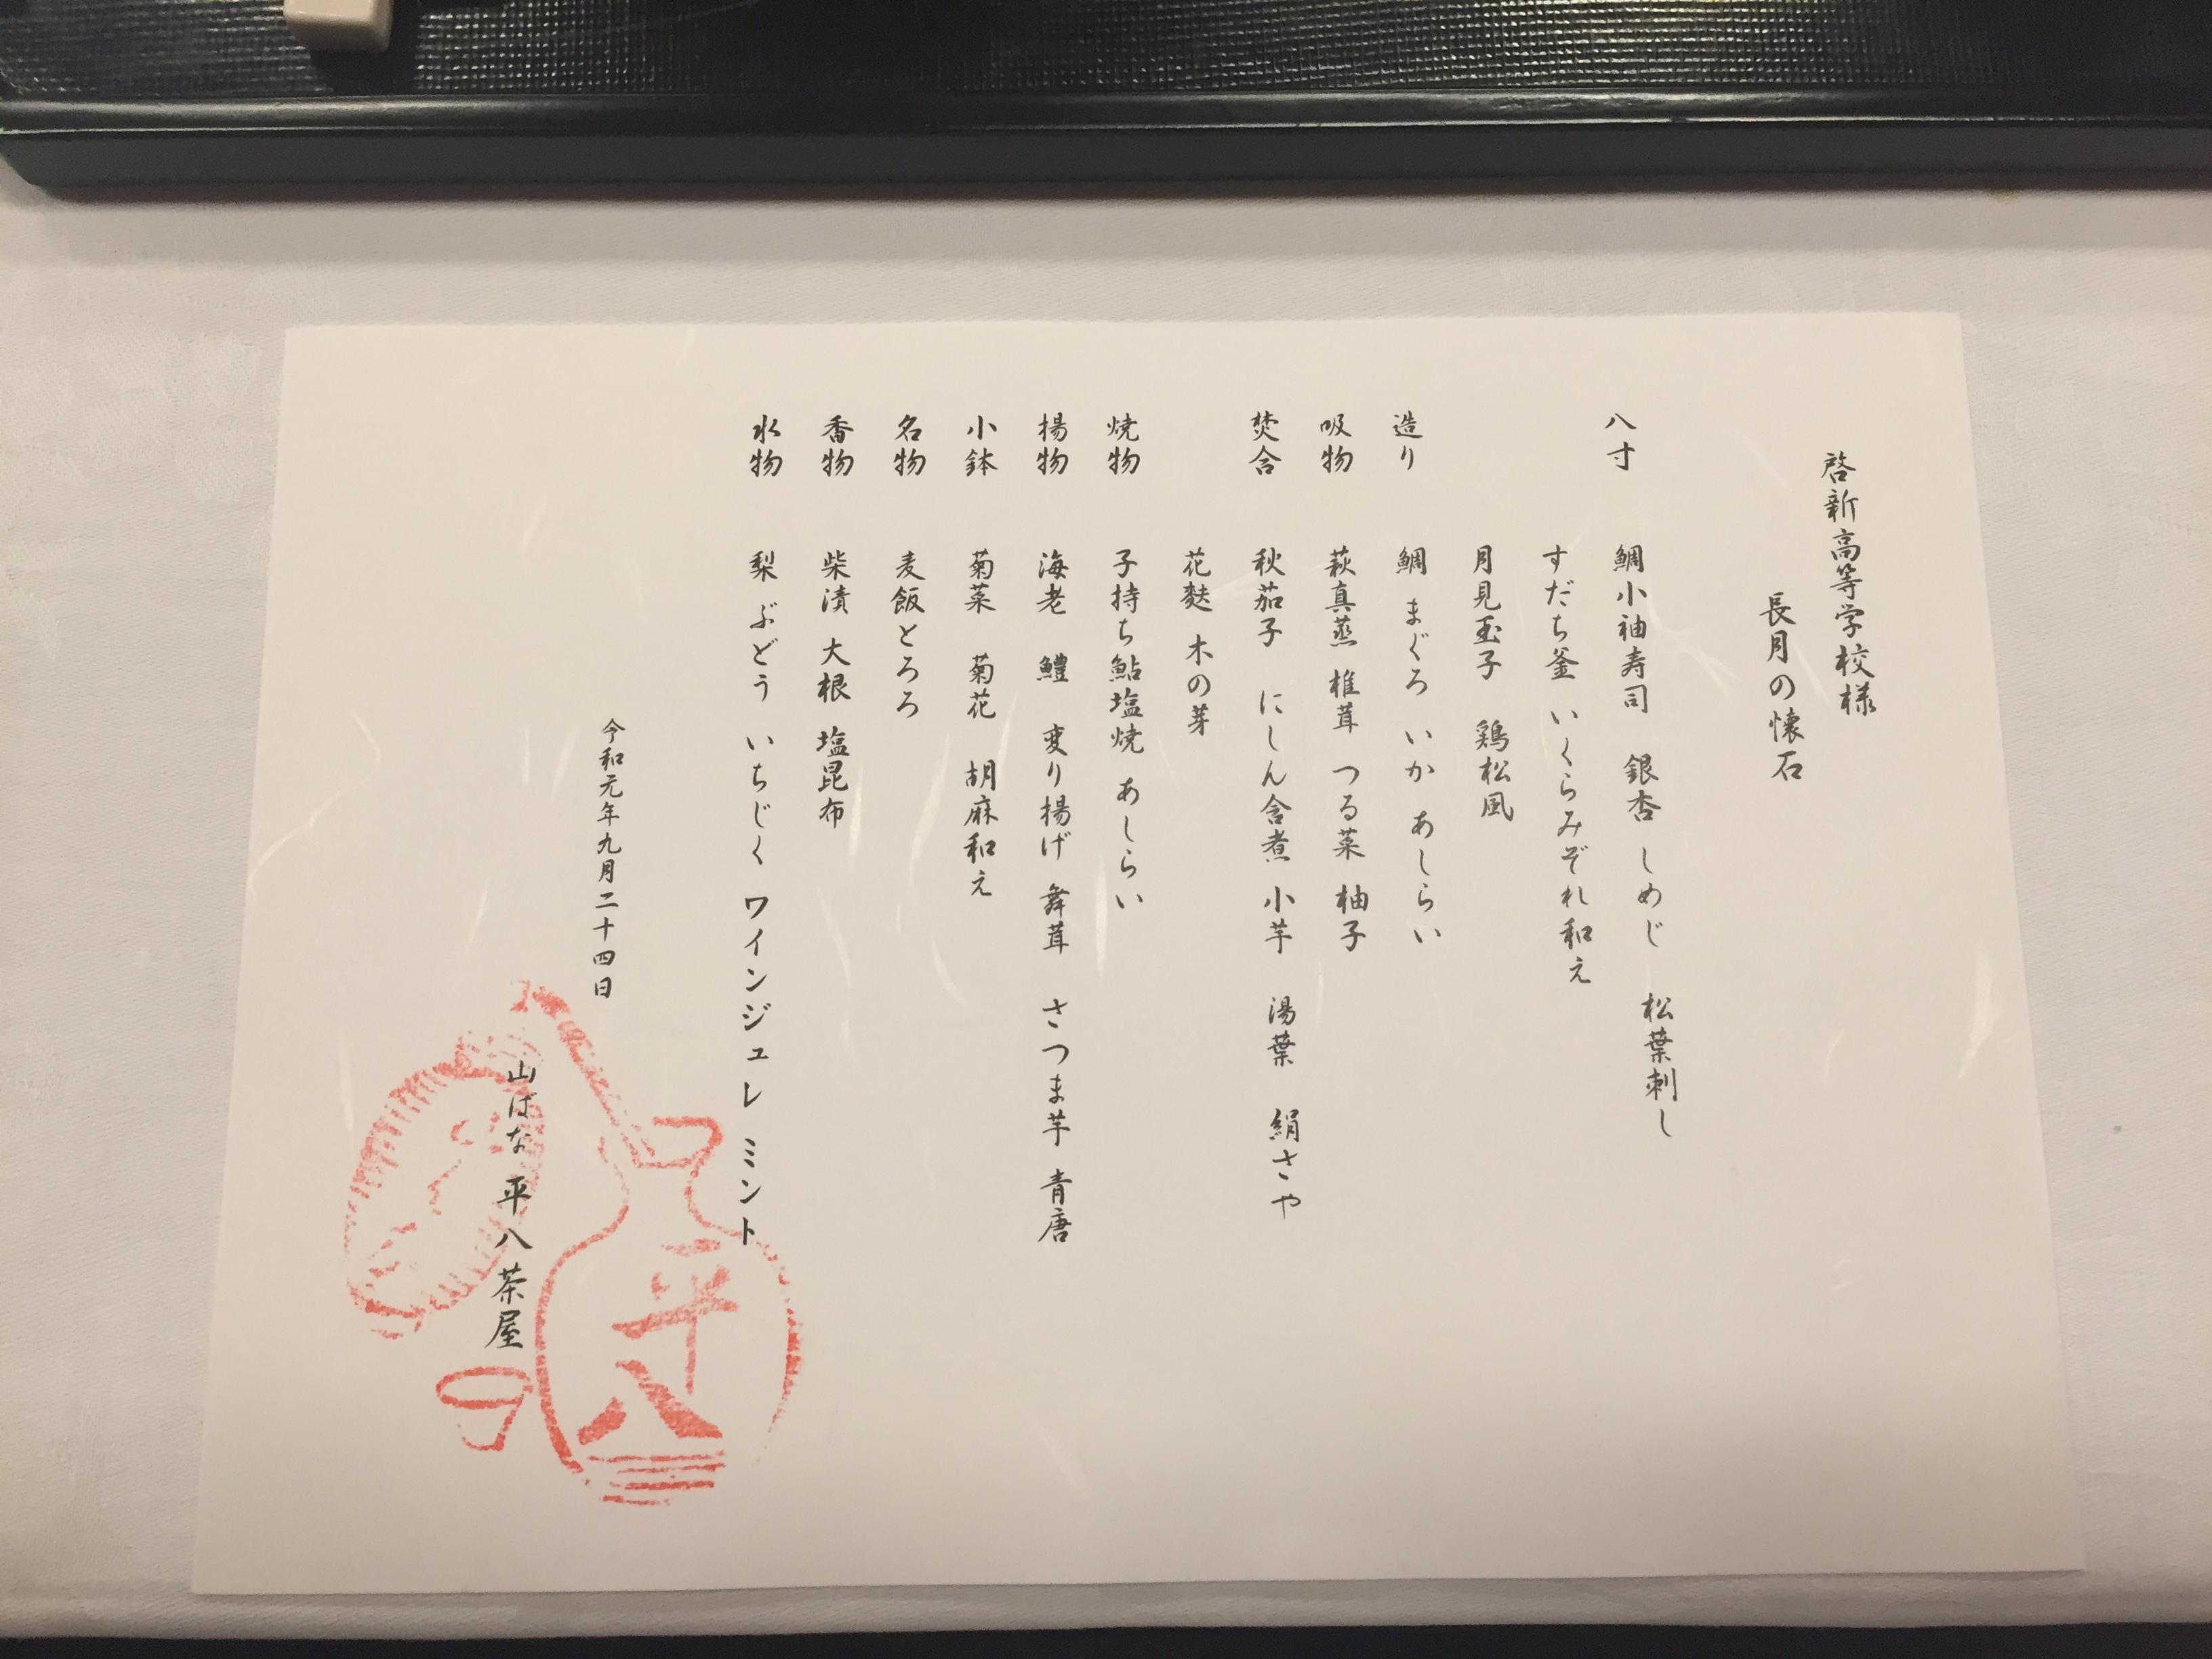 啓新高等学校様
長月の懐石
八寸 鯛小袖寿司 銀杏 しめじ 松葉刺し
すだち釜 いくらみぞれ和え
月見玉子 鶏松風
造り 鯛 まぐろ いか あしらい
吸物 萩真蒸 椎茸 つる菜 柚子
焚合 秋茄子 にしん含煮 小芋 湯葉 絹さや
花麩 木の芽
焼物 子持ち鮎塩焼 あしらい
揚物 海老 鱧 変り揚げ 舞茸 さつま芋 青唐
小鉢 菊菜 菊花 胡麻和え
名物 麦飯とろろ
香物 柴漬 大根 塩昆布
水物 梨 ぶどう いちじく ワインジュレ ミント
令和元年九月二十四日
山ばな 平八茶屋
平八